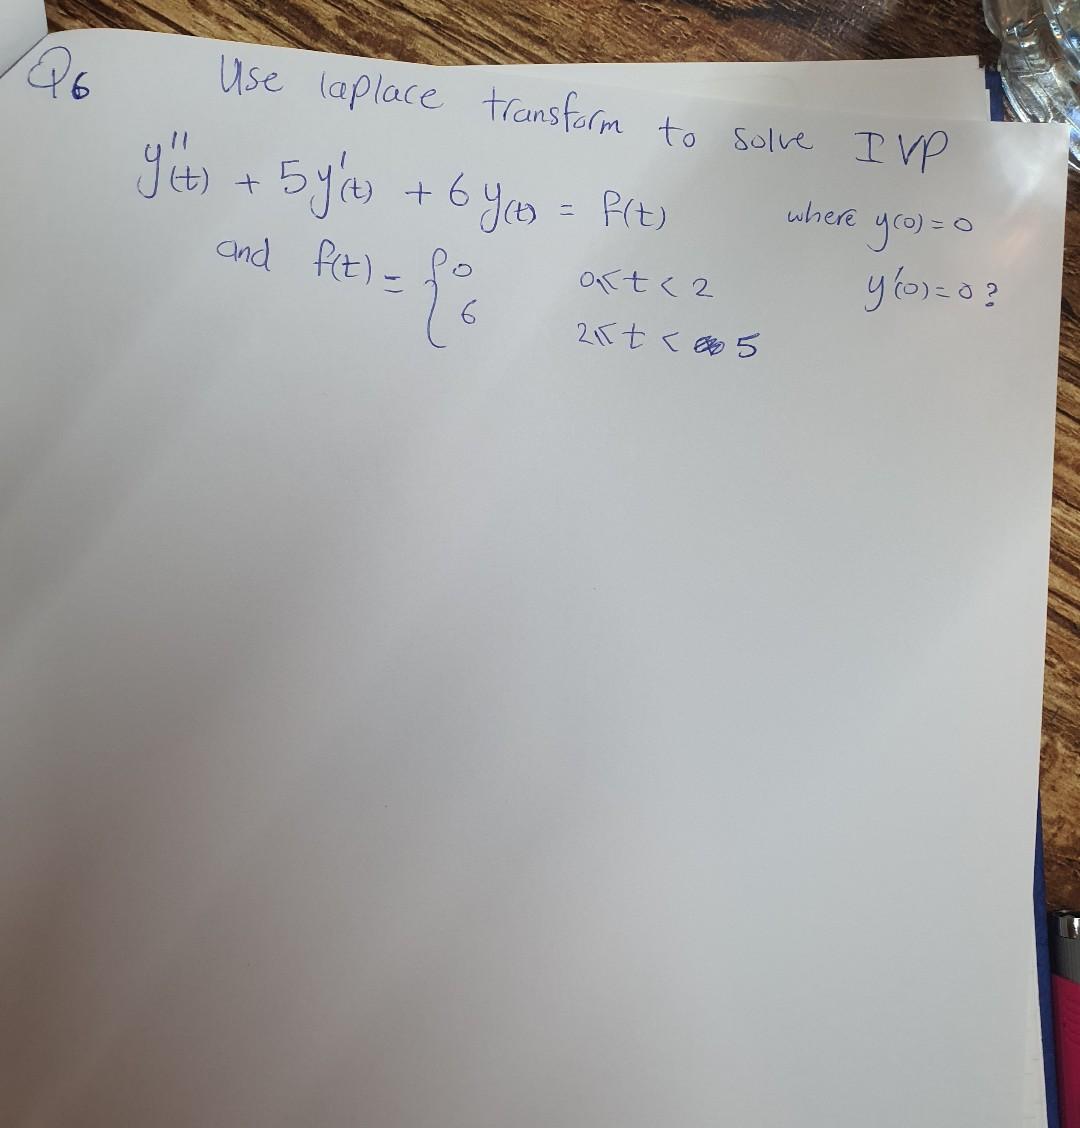 Q6 Use laplace transform to solve IVP
y''(t) + 5y'(t) + 6y(t) = f(t) where y(0) = 0
and f(t) = { 0 0≤t<2 y'(0) = 0 ?
6 2≤t< 5